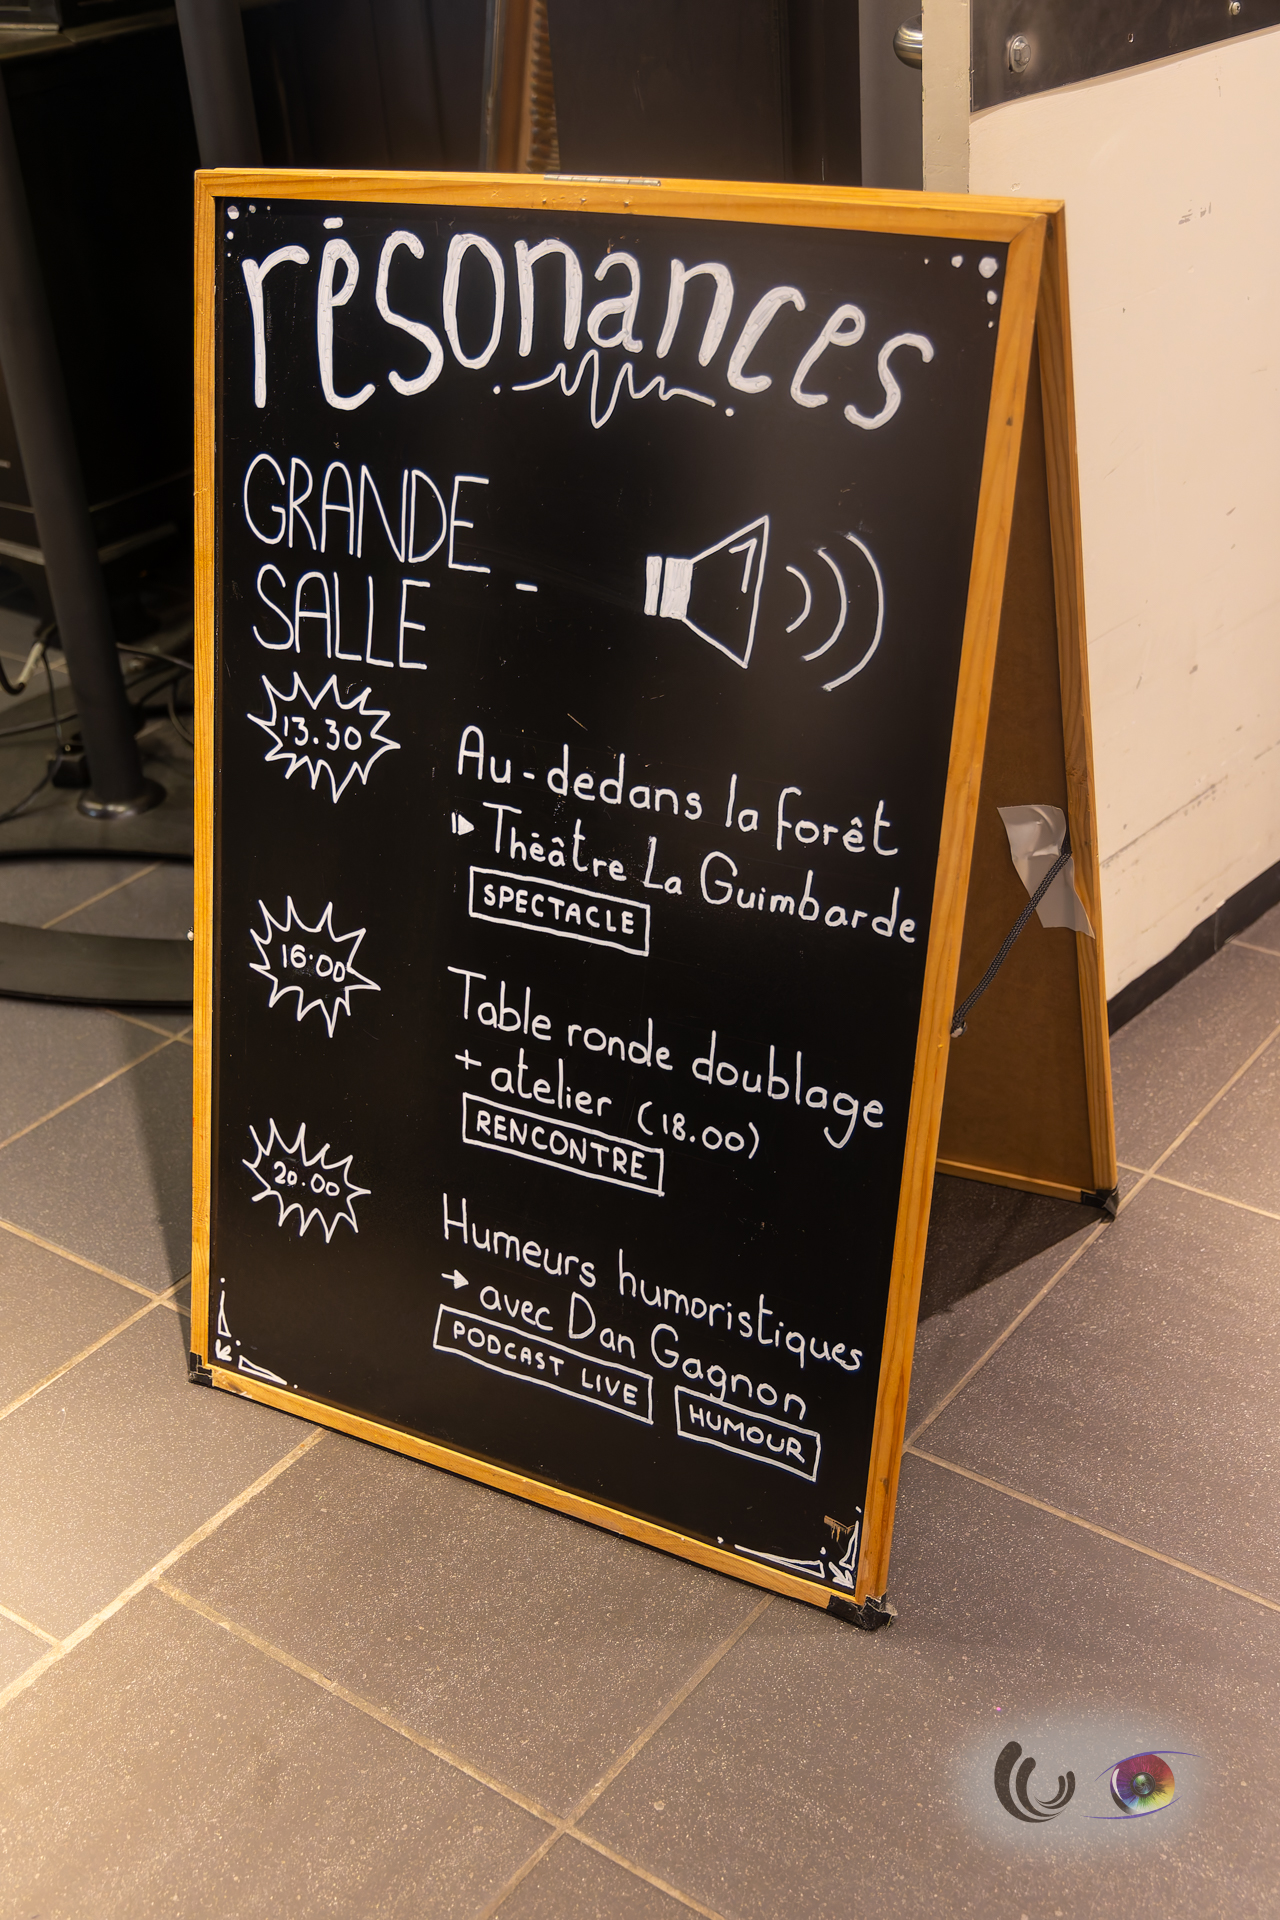 résonances
GRANDE -
SALLE
13.30
Au-dedans la forêt
Théâtre La Guimbarde
SPECTACLE
16.00
Table ronde doublage
+ atelier (18.00)
RENCONTRE
20.00
Humeurs humoristiques
→ avec Dan Gagnon
PODCAST LIVE HUMOUR